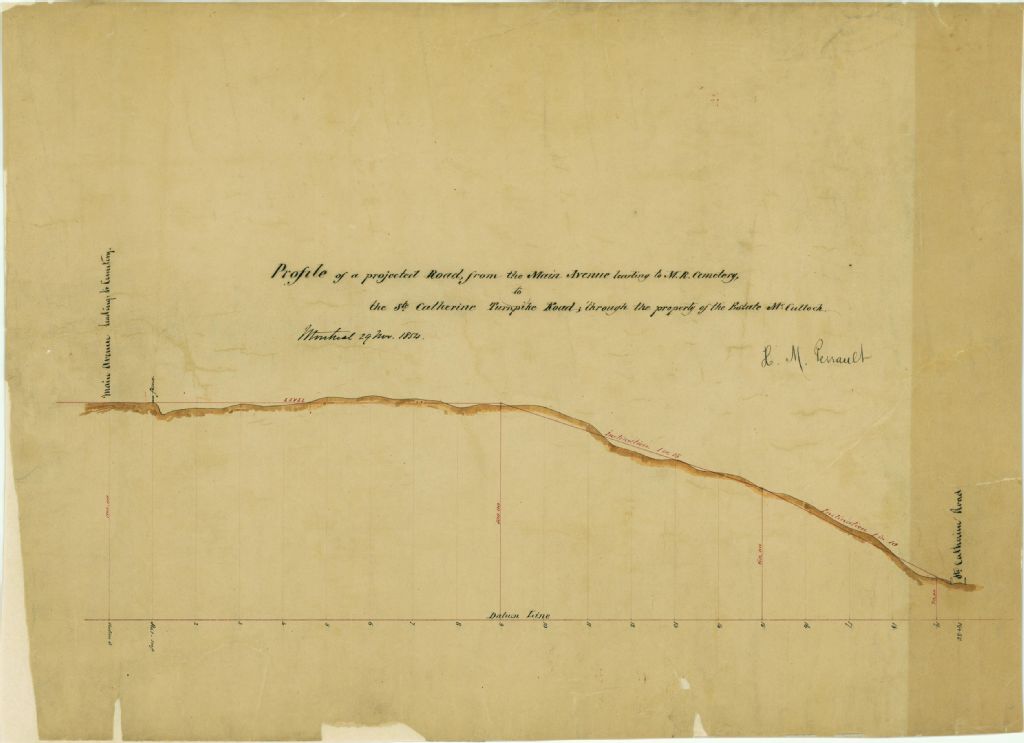 Profile of a projected Road, from the Main Avenue leading to M. R. Cemetery,
to
the Ste Catherine Turnpike Road; through the property of the Estate Mc Culloch.
Montreal 29 Nov. 1854.
H. M. Perrault
Main Avenue leading to Cemetery.
LEVEL
Inclination 1 in 15
Inclination 1 in 10
Ste Catherine Road
Datum Line
2 3 4 5 6 7 8 9 10 11 12 13 14 15 16 17 18 19